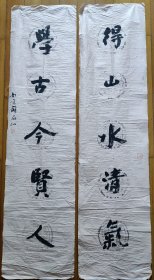 得山水清氣
學古今賢人